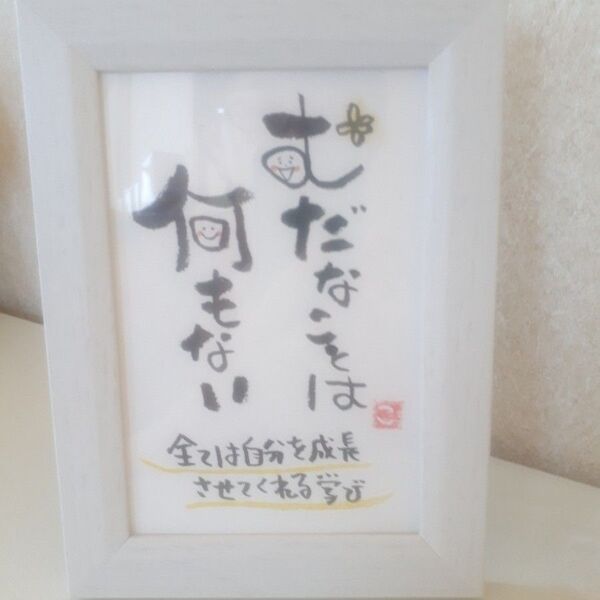 むだなことは
何もない
全ては自分を成長
させてくれる学び
こ